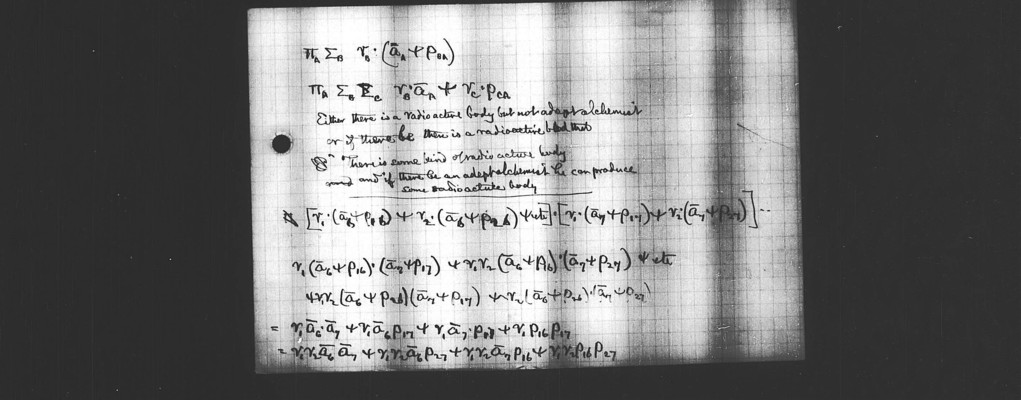 Π_A Σ_B r_B·(ā_A ⩛ p_BA)
Π_A Σ_B Σ_C r_B·ā_A ⩛ r_C·p_CA
Either there is a radioactive body but not adept alchemist
or if there be there is a radioactive
"There is some kind of radioactive body
and if there be an adept alchemist he can produce
some radioactive body
[r₁·(ā₆ ⩛ p₁₆) ⩛ r₂·(ā₆ ⩛ p₂₆) ⩛ etc]·[r₁·(ā₇ ⩛ p₁₇) ⩛ r₂(ā₇ ⩛ p₂₇)] ...
r₁(ā₆ ⩛ p₁₆)·(ā₇ ⩛ p₁₇) ⩛ r₁r₂(ā₆ ⩛ p₁₆)·(ā₇ ⩛ p₂₇) ⩛ etc
⩛ r₁r₂(ā₆ ⩛ p₂₆)(ā₇ ⩛ p₁₇) ⩛ r₂(ā₆ ⩛ p₂₆)·(ā₇ ⩛ p₂₇)
= r₁ā₆·ā₇ ⩛ r₁ā₆p₁₇ ⩛ r₁ā₇·p₁₆ ⩛ r₁p₁₆p₁₇
= r₁r₂ā₆ā₇ ⩛ r₁r₂ā₆p₂₇ ⩛ r₁r₂ā₇p₁₆ ⩛ r₁r₂p₁₆p₂₇